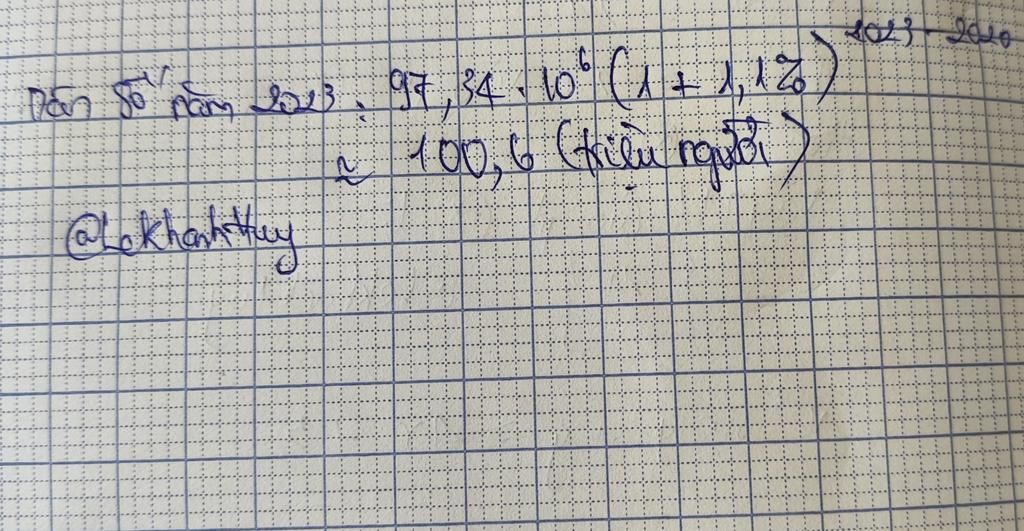 Dân số năm 2023 : 97,34 . 10⁶ (1 + 1,1%)²⁰²³⁻²⁰²⁰
≈ 100,6 (triệu người)
@LeKhanhHuy